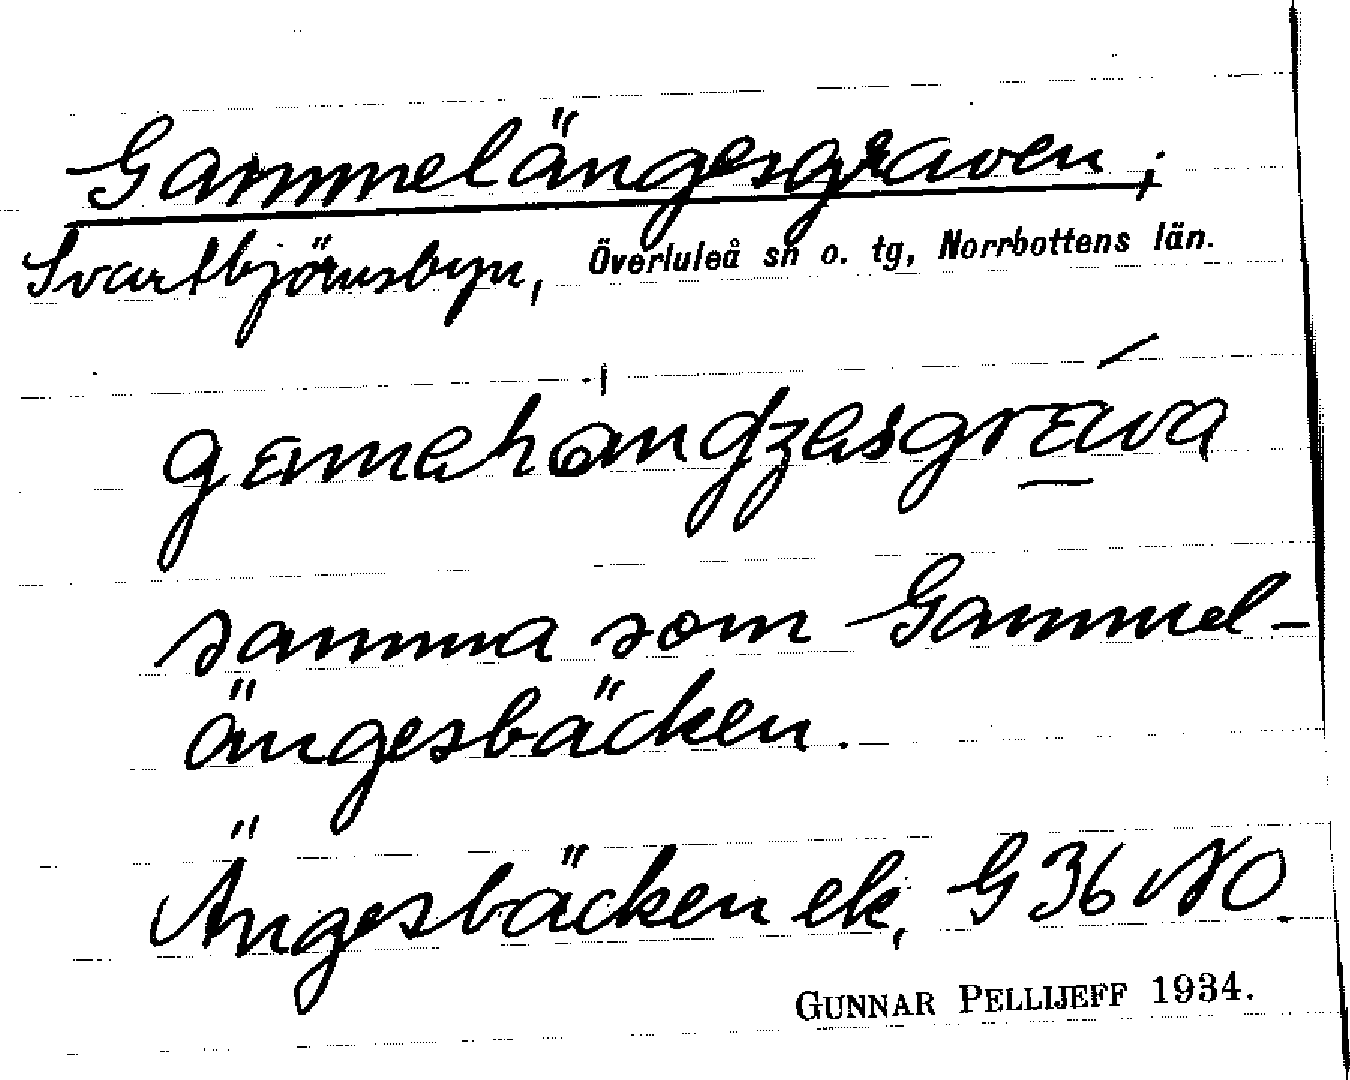 Gammelängesgraven;
Svartbjörnsbyn, Överluleå sn o. tg, Norrbottens län.
samma som Gammel-
ängesbäcken.
Ängesbäcken ek, G 36 NO
GUNNAR PELLIJEFF 1934.